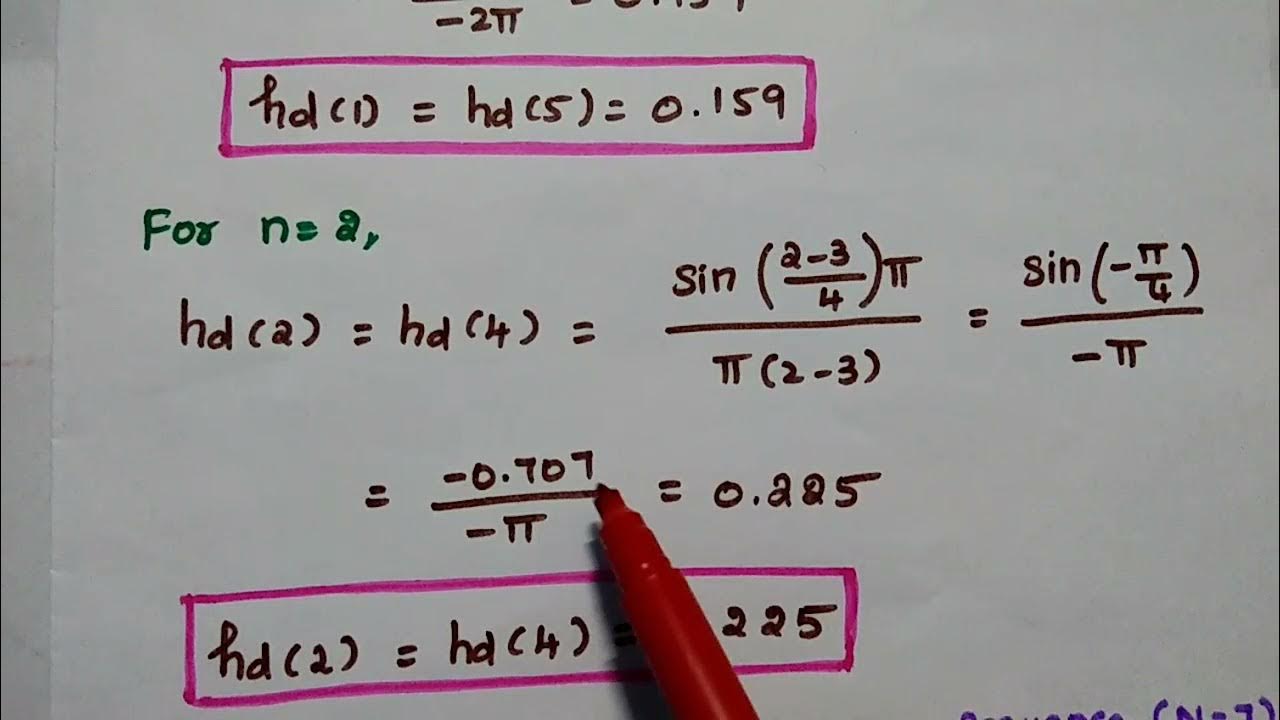 -2π
hd(1) = hd(5) = 0.159
For n=2,
hd(2) = hd(4) = sin((2-3)/4)π / π(2-3) = sin(-π/4) / -π
= -0.707 / -π = 0.225
hd(2) = hd(4) = 225
(N=7)